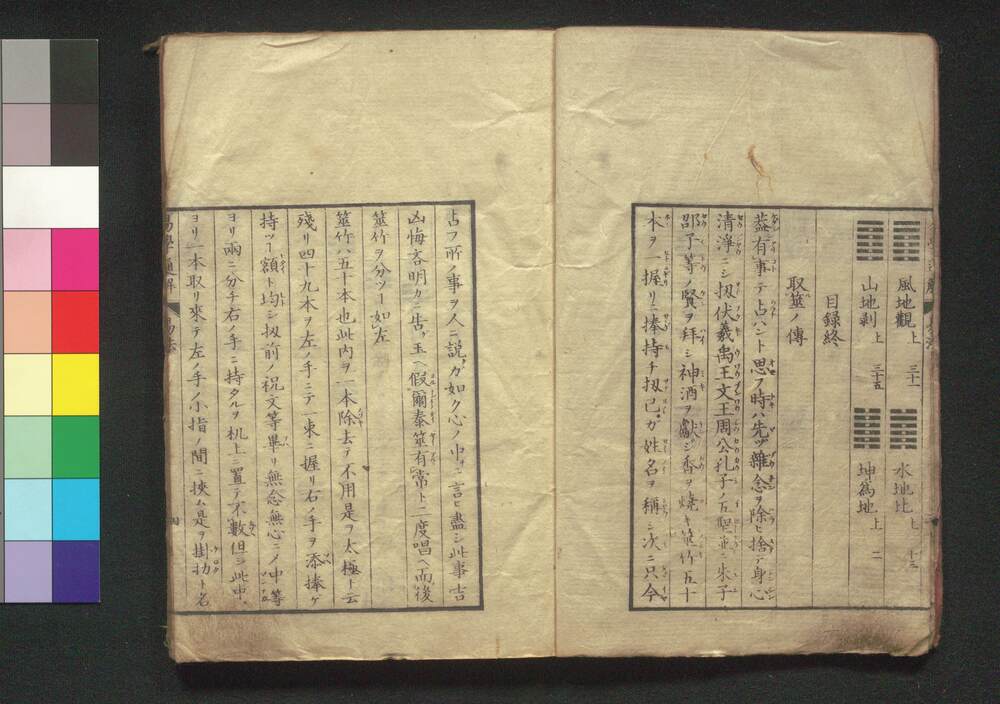 風地觀 上 三十一
水地比 上 十三
山地剥 上 三十五
坤為地 上 二
目録終
取筮ノ傳
蓋有事テ占ハント思フ時ハ先ヅ雜念ヲ除ヒ捨テ身心
清淨ニシ扨伏羲禹王文王周公孔子ノ五聖並ニ朱子
邵子等ノ賢ヲ拜シ神酒ヲ獻ジ香ヲ燒キ筮竹五十
本ヲ一握リ捧持チ扨己ガ姓名ヲ稱シ次ニ只今
占フ所ノ事ヲ人ニ説ガ如ク心ノ中ニ言ヒ盡シ此事吉
凶悔吝明カニ告玉ヘ假爾泰筮有常ト二度唱ヘ而後
筮竹ヲ分ツー如左
筮竹ハ五十本也此内ヲ一本除去テ不用是ヲ太極ト云
殘リ四十九本ヲ左ノ手ニテ一束ニ握リ右ノ手ヲ添捧ゲ
持ツー額ト均シ扨前ノ祝文等畢リ無念無心ニノ中等
ヨリ兩ニ分チ右ノ手ニ持タルヲ机上ニ置テ不數但シ此中
ヨリ一本取リ來テ左ノ手ノ小指ノ間ニ挾ム是ヲ掛扐ト名
易學通解